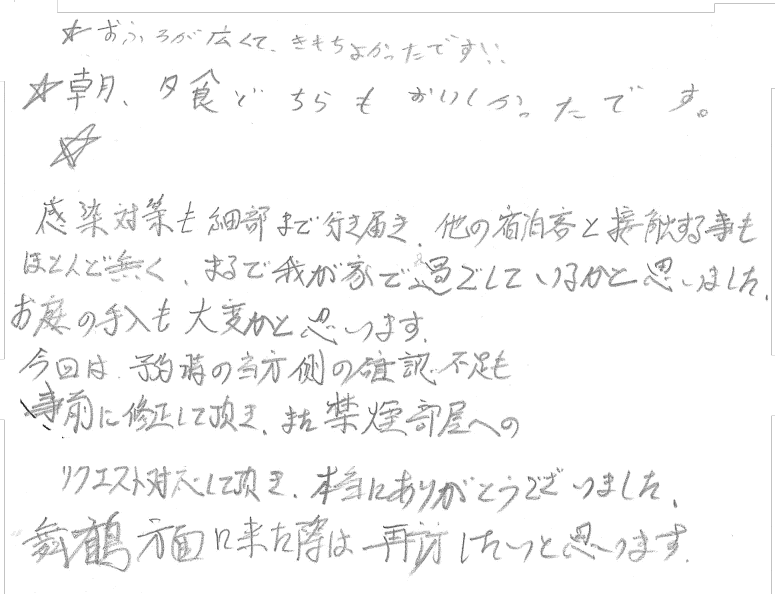 ☆ おふろが広くて、きもちよかったです!!
☆ 朝、夕食どちらもおいしかったです。
☆
感染対策も細部まで行き届き、他の宿泊客と接触する事も
ほとんど無く、まるで我が家で過ごしているかと思いました。
お庭の手入も大変かと思います。
今回は予約時の当方側の確認不足も
事前に修正して頂き、また禁煙部屋への
リクエスト対応して頂き、本当にありがとうございました。
舞鶴方面に来た際は再訪したいと思います。